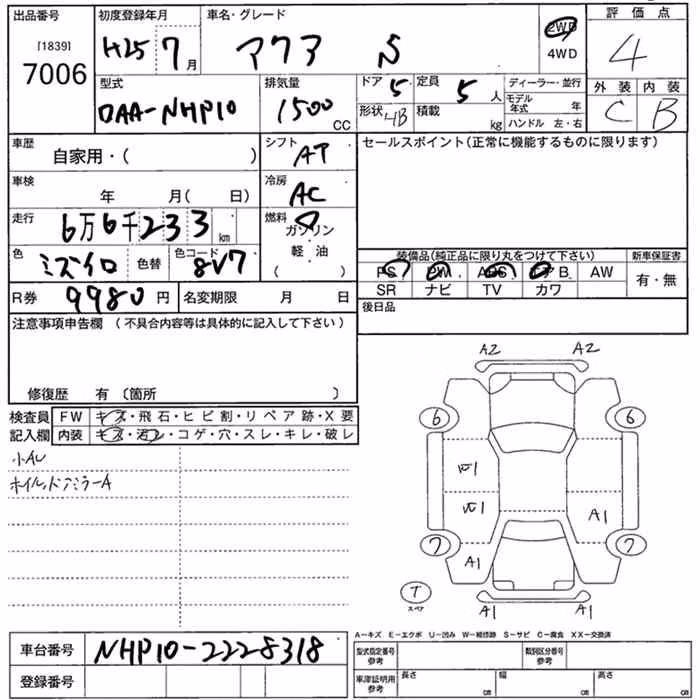 出品番号
[1839]
7006
初度登録年月
H25 7月
車名・グレード
アクア S
2WD
4WD
評価点
4
型式
DAA-NHP10
排気量
1500 CC
ドア 5
定員 5 人
形状
積載 kg
ディーラー・並行
モデル年式 年
ハンドル 左・右
外装 内装
C B
車歴
自家用・( )
シフト AT
セールスポイント(正常に機能するものに限ります)
車検
年 月( 日)
冷房 AC
走行
6万6千233 km
燃料
ガソリン
軽油
( )
色
ミズイロ
色替
色コード 8V7
装備品(純正品に限り丸をつけて下さい)
新車保証書
PS PW ABS エアB AW
SR ナビ TV カワ
有・無
R券 9980円
名変期限 月 日
後日品
注意事項申告欄 (不具合内容等は具体的に記入して下さい)
修復歴 有 〔箇所 〕
検査員記入欄
FW キズ・飛石・ヒビ割・リペア跡・X要
内装 キズ・汚レ・コゲ・穴・スレ・キレ・破レ
小AU
ホイル,ドアミラーA
A2 A2
6 6
ワ1
ワ1 A1
7 7
A1
T
スペア
A1 A1
A-キズ E-エクボ U-凹み W-補修跡 S-サビ C-腐食 XX-交換済
車台番号 NHP10-2228318
登録番号
型式指定番号 参考
類別区分番号 参考
車庫証明用 参考
長さ cm
幅 cm
高さ cm